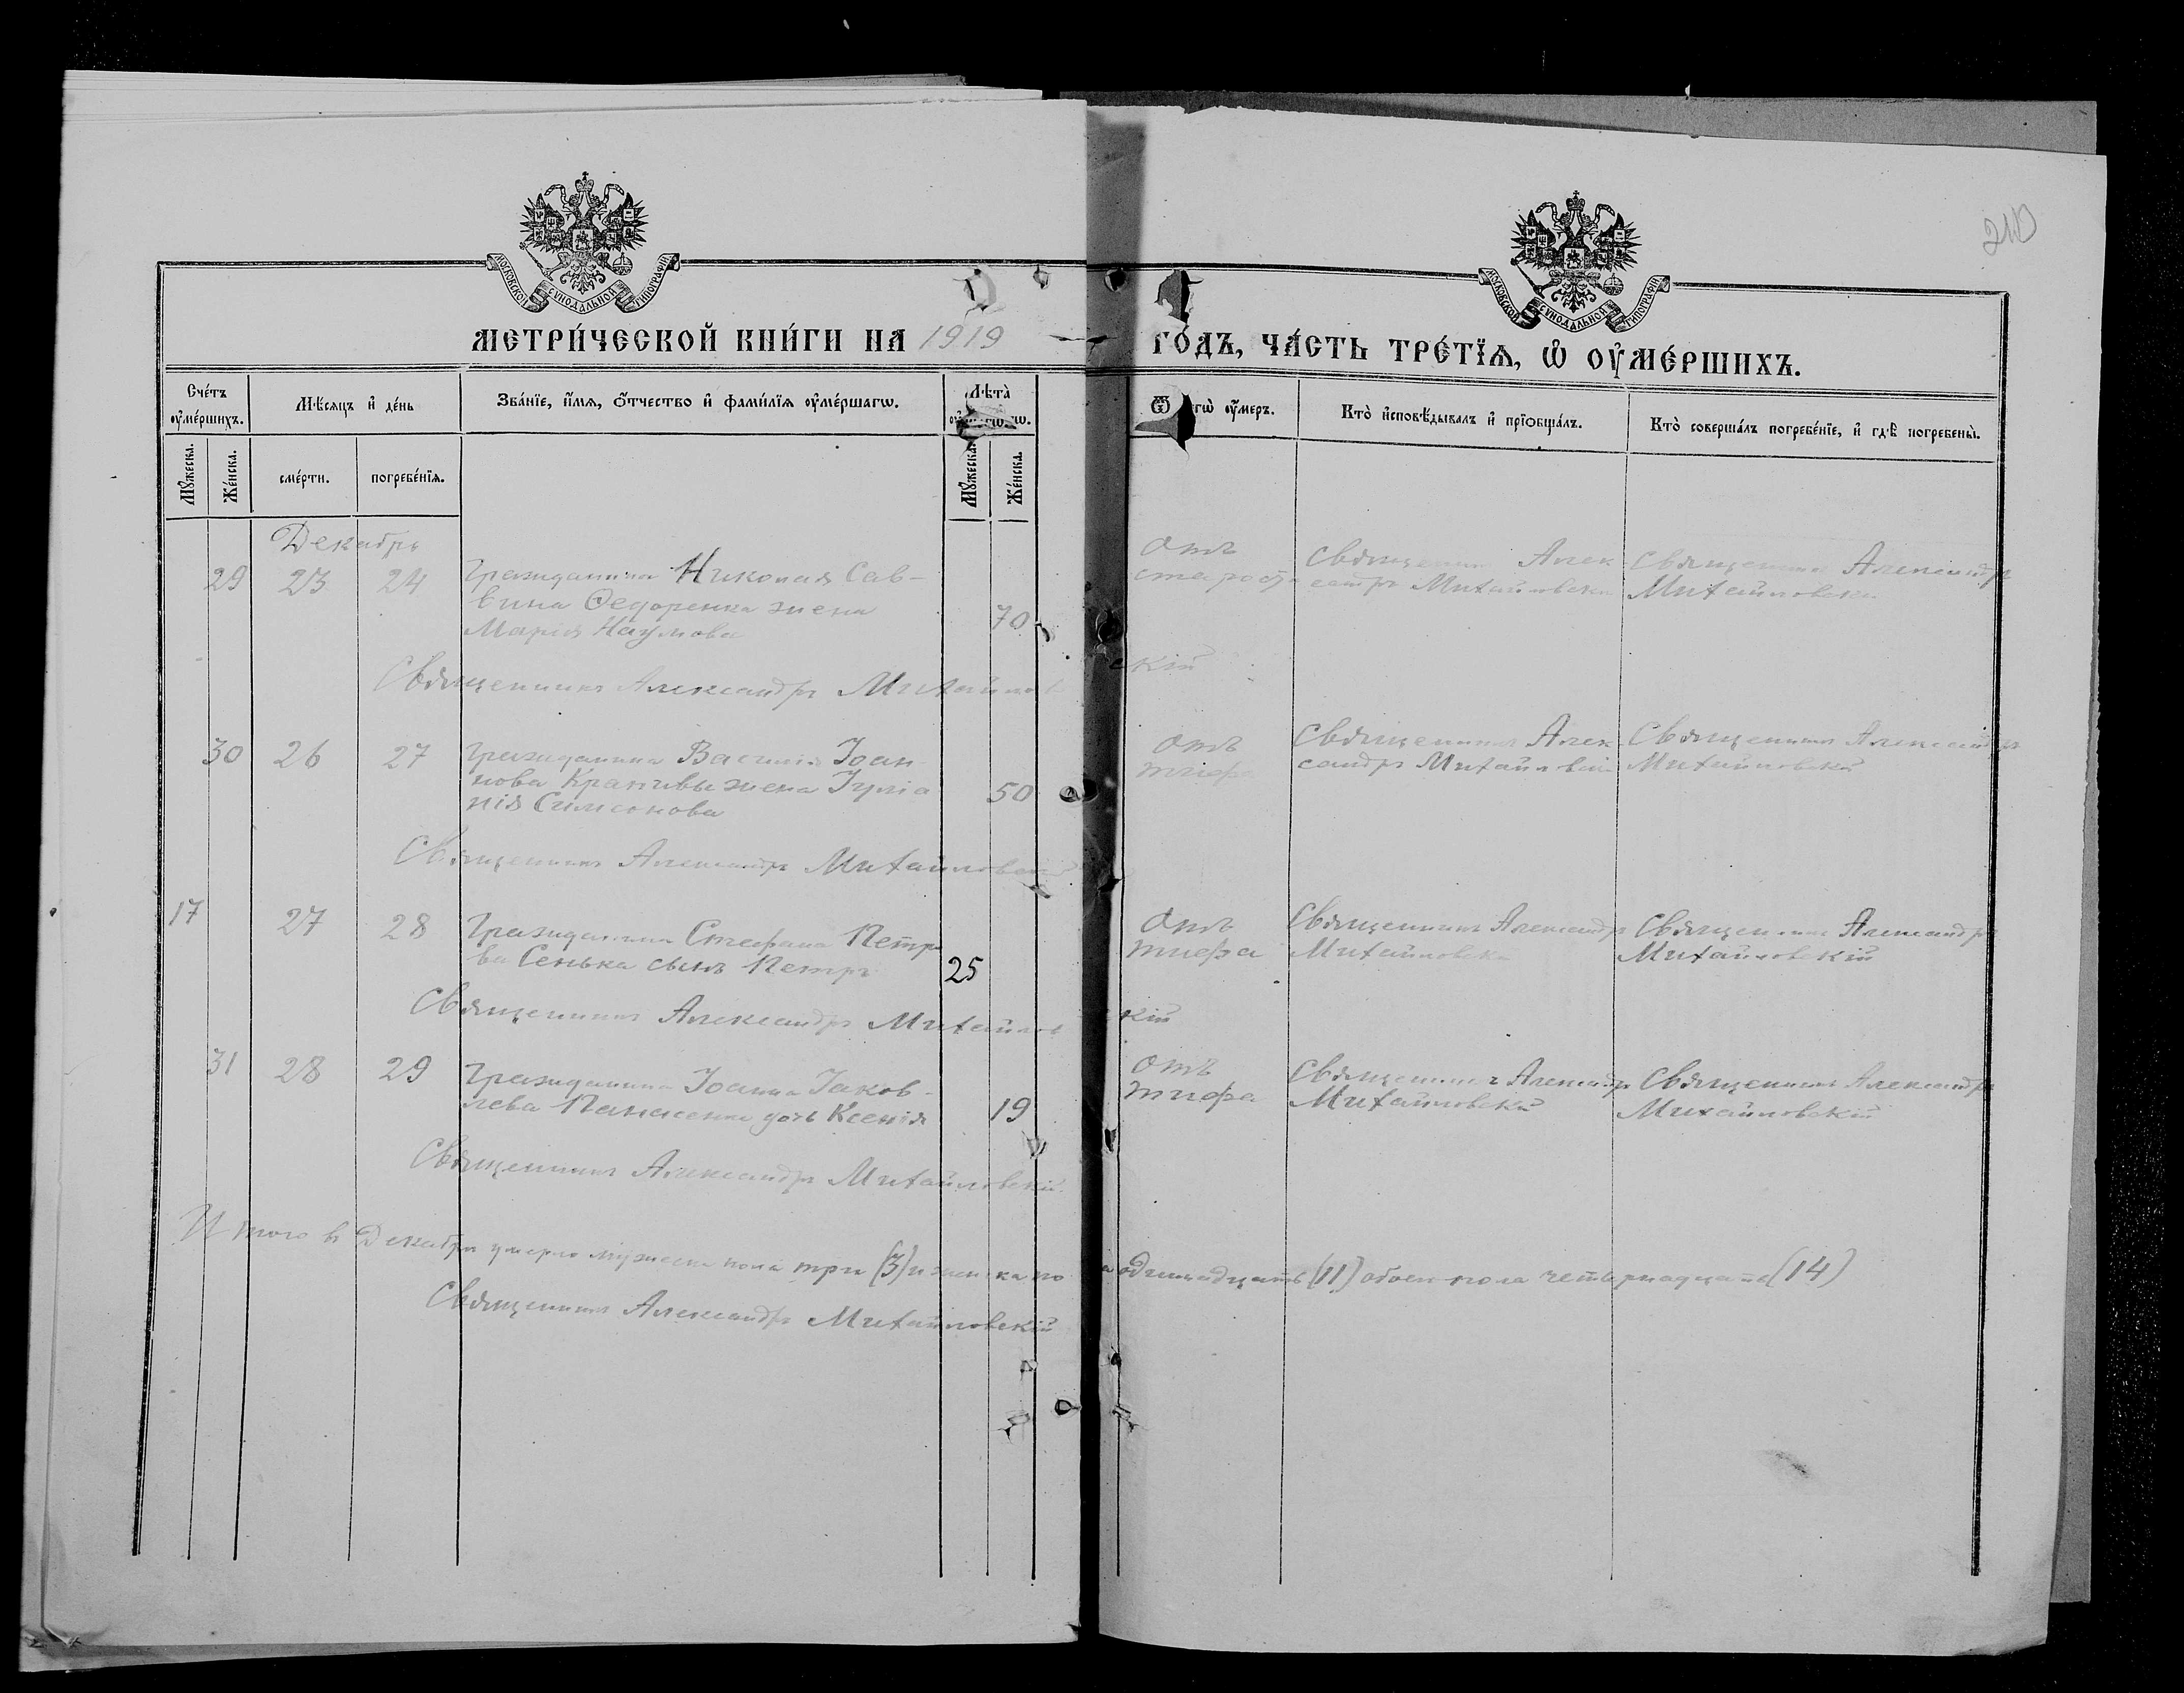 210
МОСКОВСКОЙ СУНОДАЛЬНОЙ ТИПОГРАФІИ
МОСКОВСКОЙ СУНОДАЛЬНОЙ ТИПОГРАФІИ
МЕТРИ́ЧЕСКОЙ КНИ́ГИ НА 1919 ГО́ДЪ, ЧА́СТЬ ТРЕ́ТЇѦ, Ѡ҆ ОУ҆МЕ́РШИХЪ.
Счéтъ оу҆мéршихъ.
Мѣ́сѧцъ и҆ дéнь
Звáнїе, и҆́мѧ, ѻ҆́тчество и҆ фами́лїѧ оу҆мéршагѡ.
Лѣ́та
Ѿ гѡ̀ оу҆́меръ.
Ктò и҆сповѣ́дывалъ и҆ прїѻбщáлъ.
Ктò совершáлъ погребéнїе, и҆ гдѣ̀ погребены̀.
Мꙋ́жеска.
Жéнска.
смéрти.
погребéнїѧ.
Мꙋ́жеска.
Жéнска.
Декабрь
29 23 24 Гражданина Николая Сав-
вина Федоренка жена
Марія Наумова
70
Отъ
старост
Священник Алек
сандръ Михайловски
Священникъ Александръ
Михайловски
Священникъ Александръ Михайловскій
30 26 27 Гражданина Василія Іоан-
нова Крапивы жена Іуліа
нія Симсонова
50
Отъ
тифа
Священникъ Алек
сандръ Михайловскій
Священникъ Александръ
Михайловскій
Священникъ Александръ Михайловскій
17 27 28 Гражданина Стефана Петро
ва Сенька сынъ Петръ
25
Отъ
тифа
Священникъ Александръ
Михайловски
Священникъ Александръ
Михайловскій
Священникъ Александръ Михайловскій
31 28 29 Гражданина Іоанна Іаков-
лева Панасенка дочь Ксенія
19
Отъ
тифа
Священникъ Александръ
Михайловскій
Священникъ Александръ
Михайловскій
Священникъ Александръ Михайловскій.
Итого въ Декабрѣ умерло мужеска пола три (3) и женска пола одинадцать (11) обоего пола четырнадцать (14)
Священникъ Александръ Михайловскій